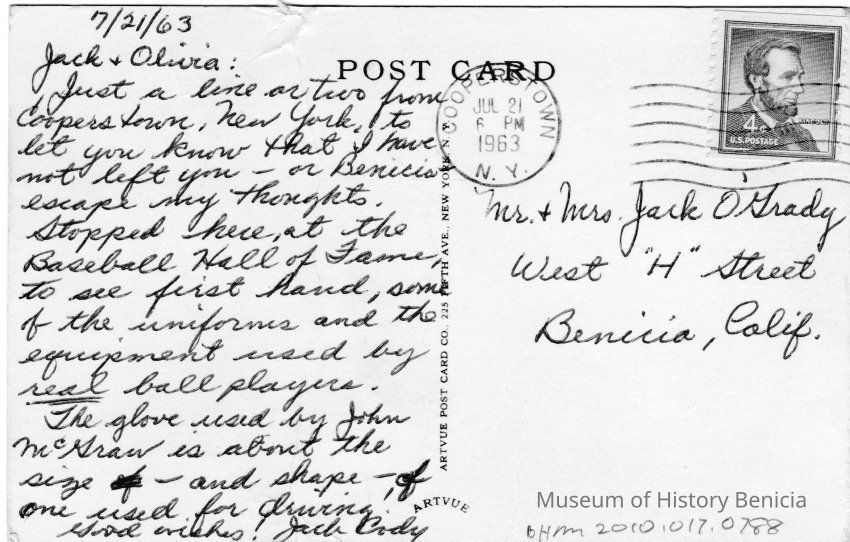 7/21/63
Jack & Olivia:
Just a line or two from
Cooperstown, New York, to
let you know that I have
not left you – or Benicia
escape my thoughts.
Stopped here, at the
Baseball Hall of Fame,
to see first hand, some
of the uniforms and the
equipment used by
real ball players.
The glove used by John
McGraw is about the
size – and shape – of
one used for driving.
Good wishes! Jack Cody
POST CARD
COOPERSTOWN
JUL 21
6 PM
1963
N. Y.
4¢
LINCOLN
U.S. POSTAGE
Mr. & Mrs. Jack O'Grady
West "H" Street
Benicia, Calif.
ARTVUE POST CARD CO., 225 FIFTH AVE., NEW YORK, N.Y.
ARTVUE
Museum of History Benicia
BHM 2010.017.0788